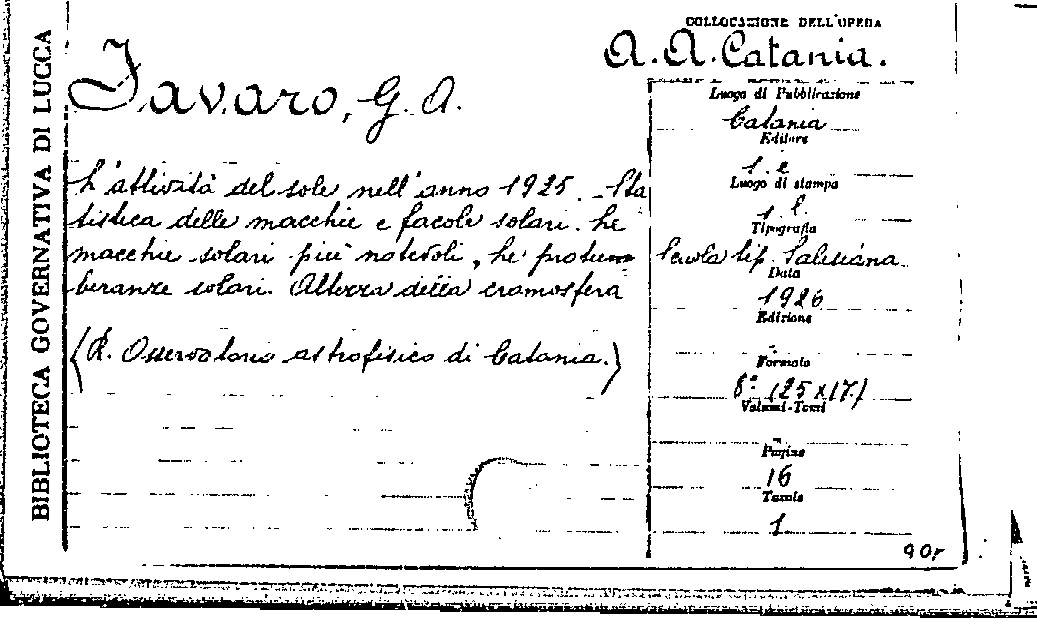 BIBLIOTECA GOVERNATIVA DI LUCCA
COLLOCAZIONE DELL'OPERA
A. A. Catania.
Favaro, G. A.
L'attività del sole nell'anno 1925. Sta
tistica delle macchie e facole solari. Le
macchie solari più notevoli, Le protu
beranze solari. Altezza della cromosfera
(R. Osservatorio astrofisico di Catania.)
Luogo di Pubblicazione
Catania
Editore
s. e
Luogo di stampa
s. l.
Tipografia
Scuola tip. Salesiana
Data
1926
Edizione
Formato
8° (25 x 17)
Volumi-Tomi
Pagine
16
Tavole
1